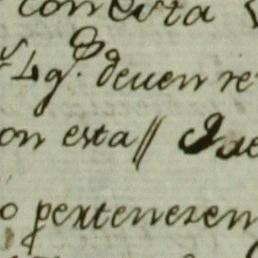 con esta
deven re
on esta // Que
o pertenesen